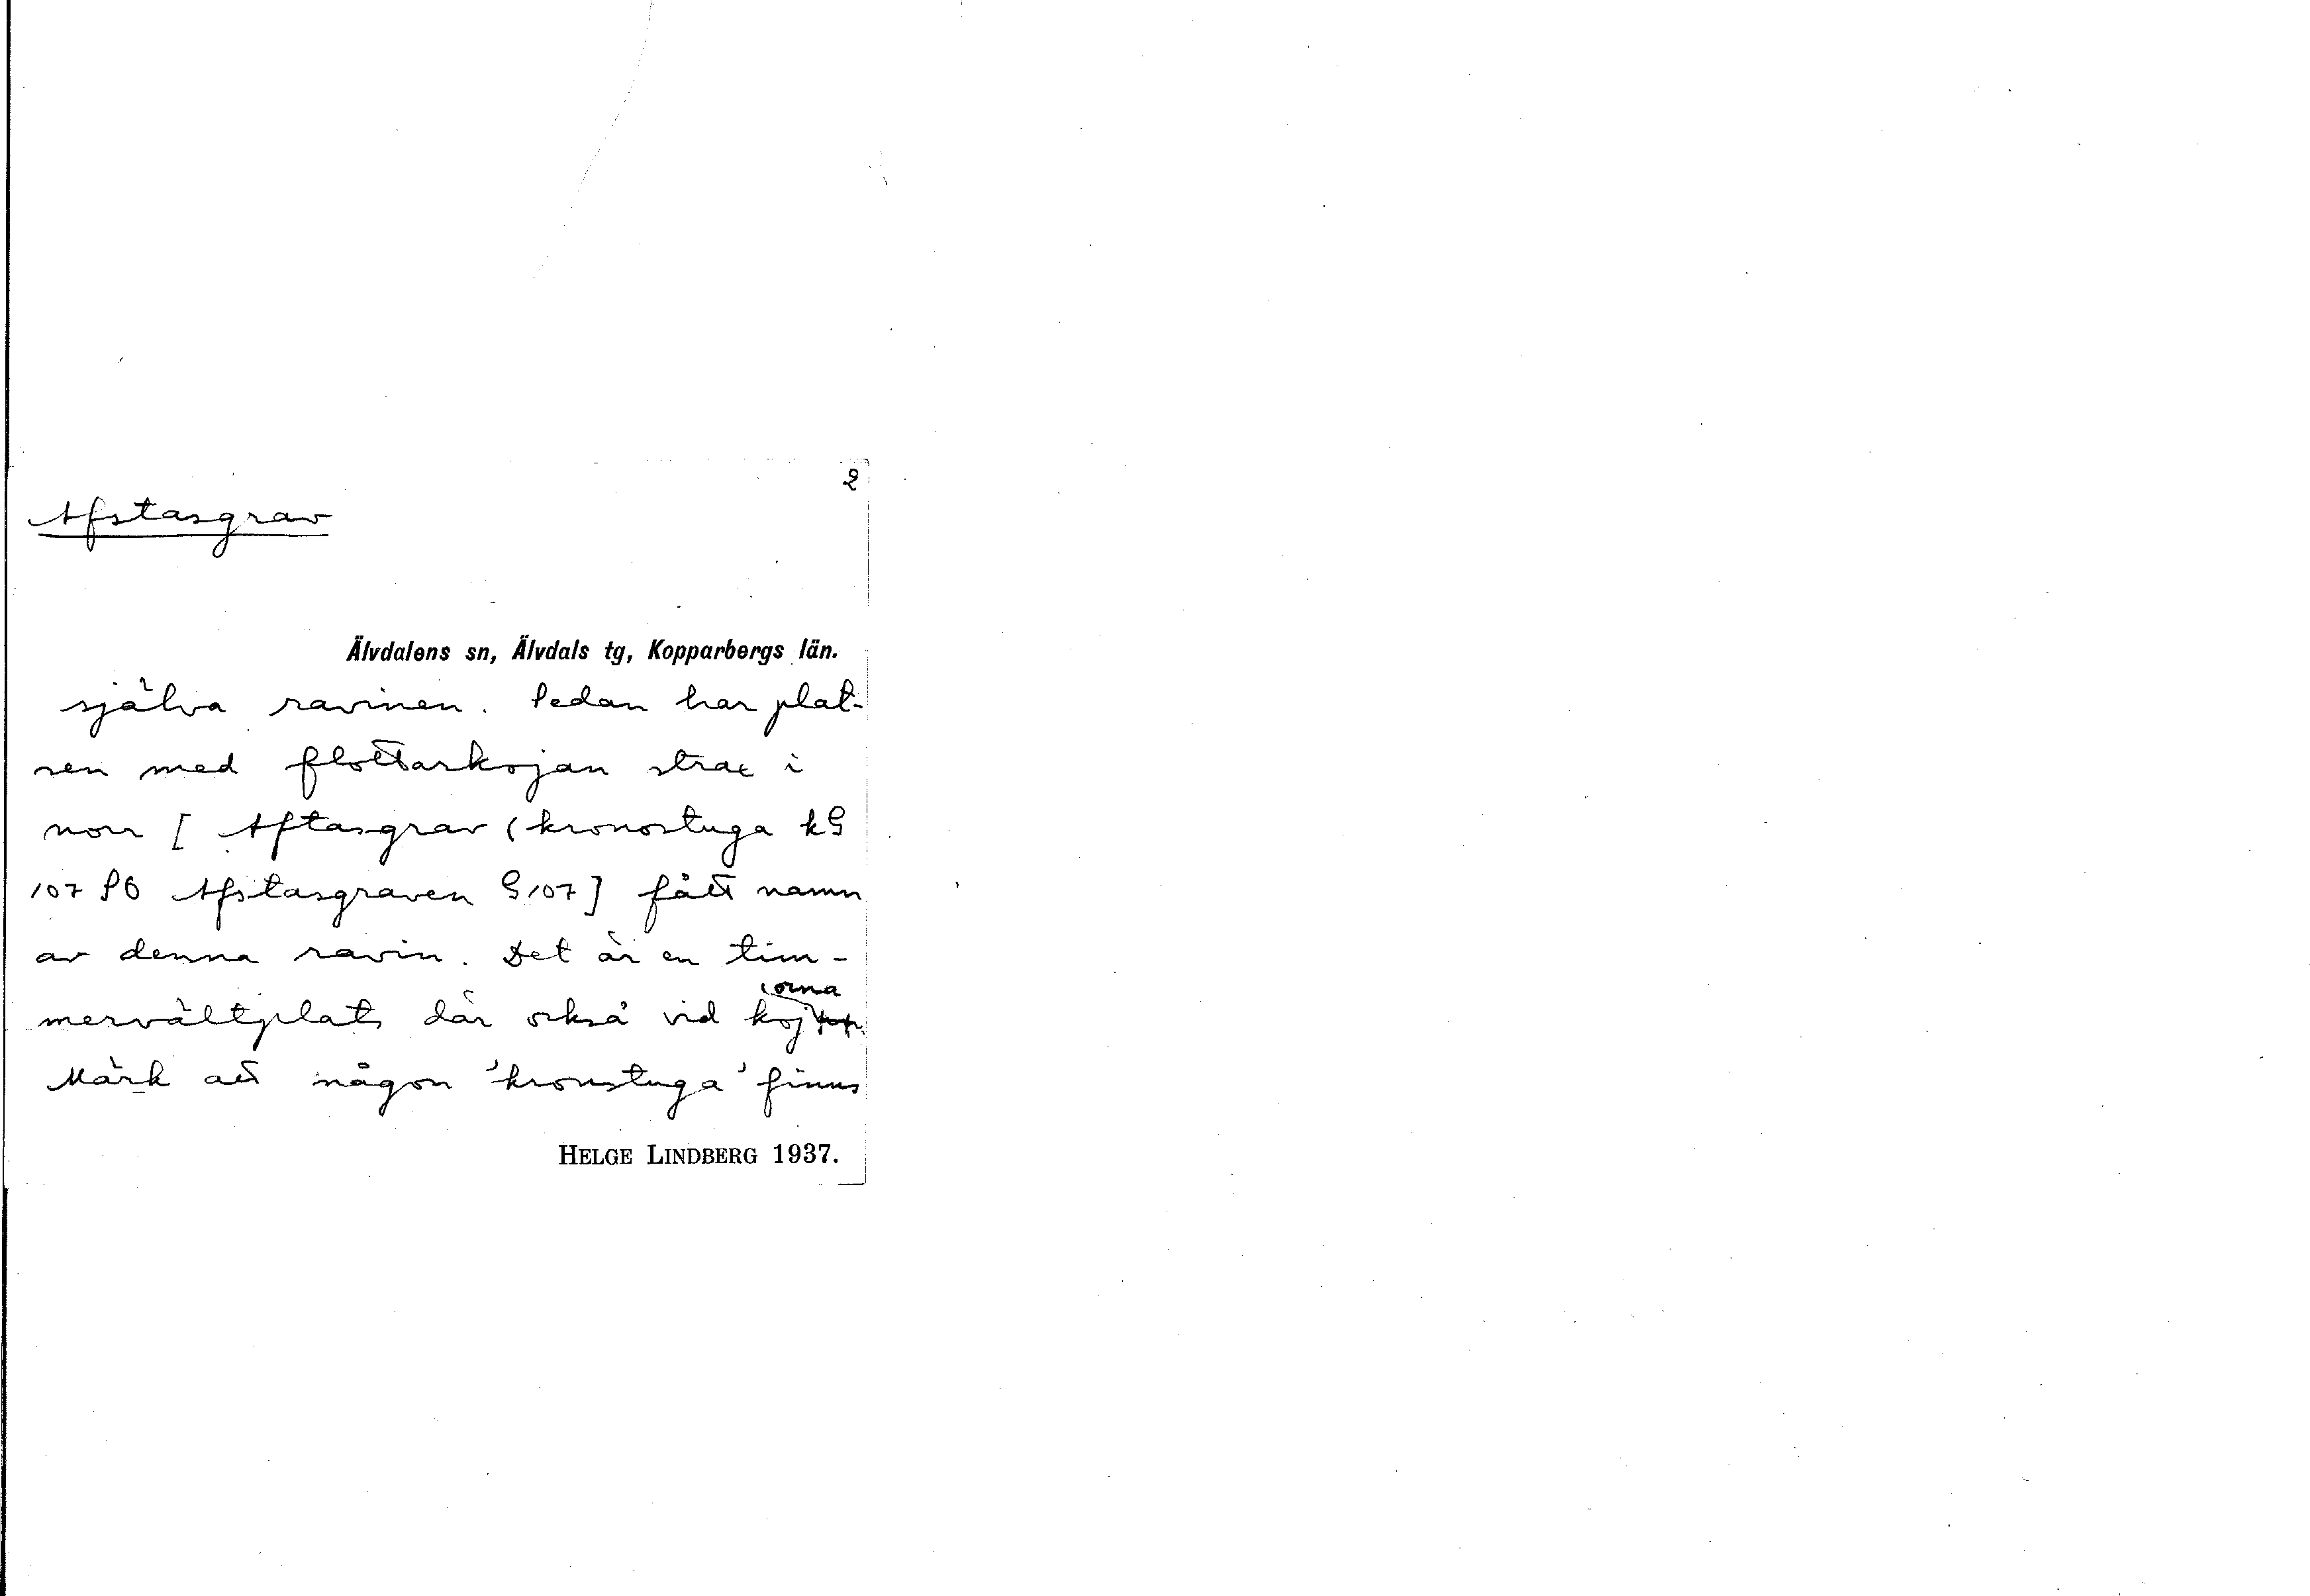 2
Afstasgrav
Älvdalens sn, Älvdals tg, Kopparbergs län.
själva ravinen. Sedan har plat-
sen med flottarkojan strax i
norr [ Aftasgrav (kronostuga kG
107 SO Afstasgraven G107] fått namn
av denna ravin. Det är en tim-
mervältplats där också vid kojorna
Märk att någon 'kronstuga' finns
HELGE LINDBERG 1937.